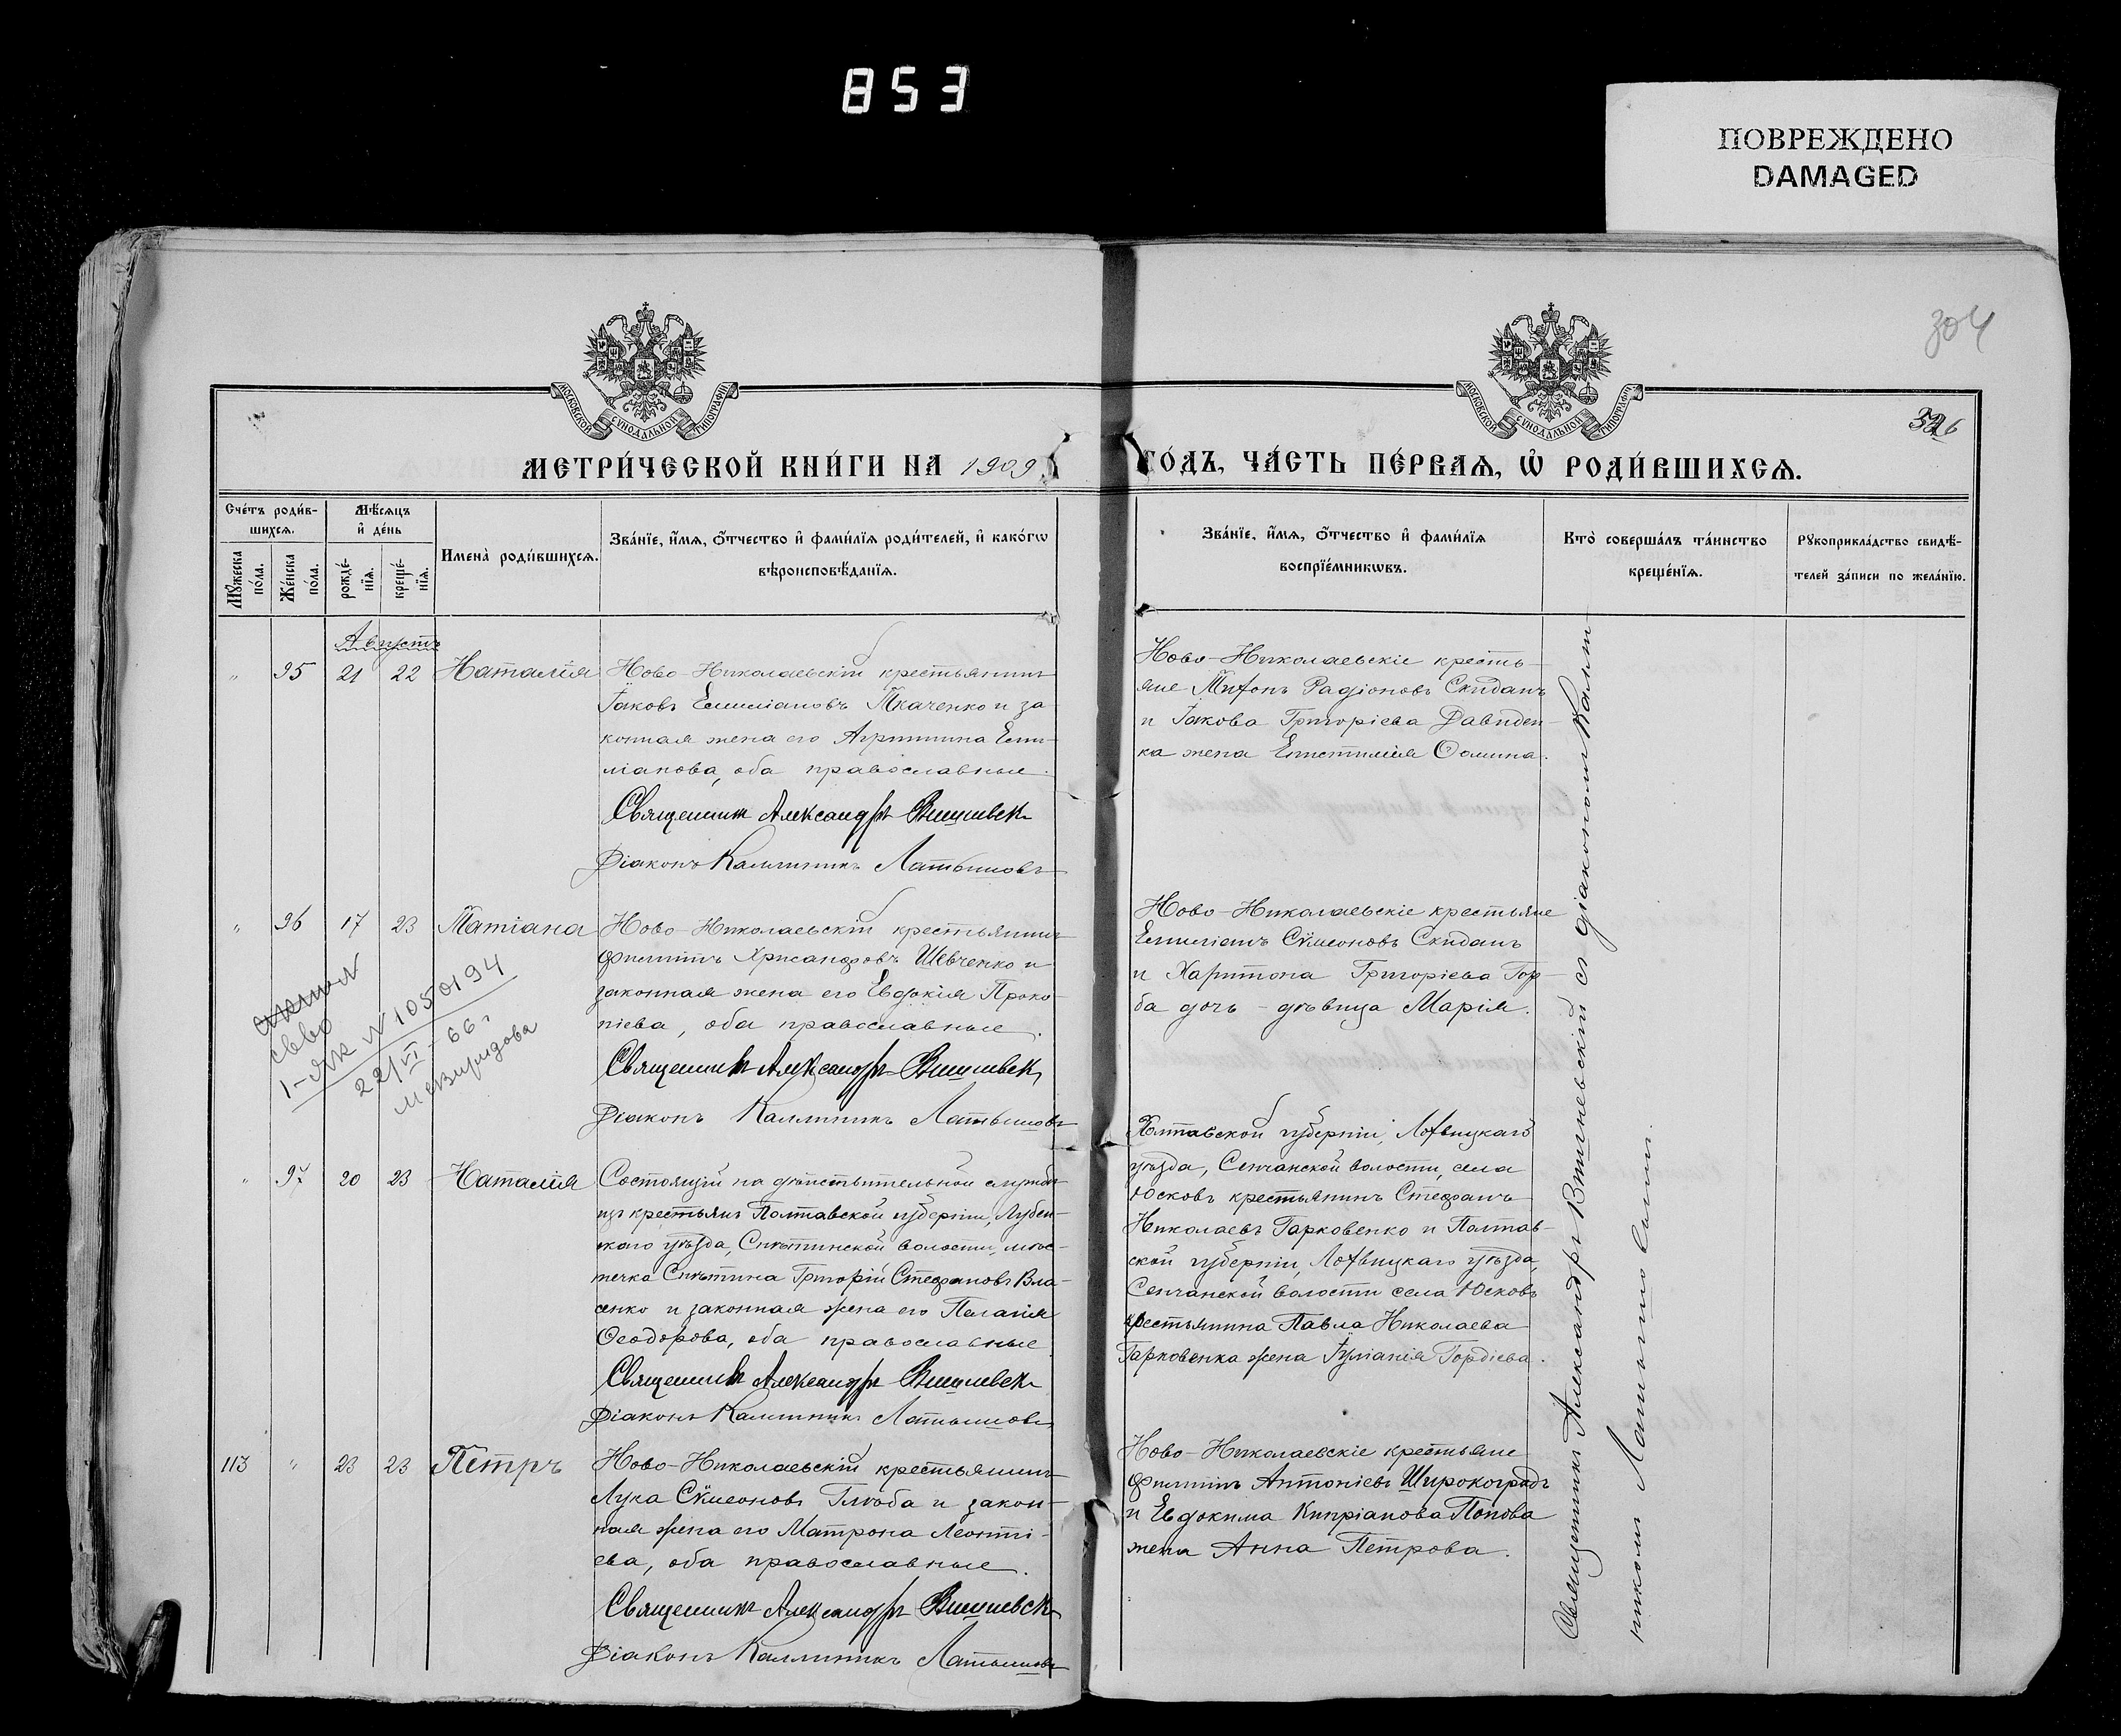 853
ПОВРЕЖДЕНО
DAMAGED
304
МОСКОВСКОЙ СѴНОДАЛЬНОЙ ТИПОГРАФІИ
МОСКОВСКОЙ СѴНОДАЛЬНОЙ ТИПОГРАФІИ
МЕТРИ́ЧЕСКОЙ КНИ́ГИ НА 1909
ГО́ДЪ, ЧА́СТЬ ПЕ́РВАѦ, Ѡ҆ РОДИ́ВШИХСѦ.
Сче́тъ роди́в-
шихсѧ.
Мѣ́сѧцъ
и҆ де́нь
Мꙋ́жеска по́ла.
Же́нска по́ла.
рожде́-нїѧ.
креще́-нїѧ.
Имена̀ роди́вшихсѧ.
Зва́нїе, и҆́мѧ, ѻ҆́тчество и҆ фами́лїѧ роди́телей, и҆ како́гѡ
вѣроисповѣ́данїѧ.
Зва́нїе, и҆́мѧ, ѻ҆́тчество и҆ фами́лїѧ
воспрїе́мникѡвъ.
Кто̀ соверша́лъ та́инство
креще́нїѧ.
Рꙋкоприкла́дство свидѣ́-
телей за́писи по жела́нїю.
Августъ
" 95 21 22 Наталія
Ново-Николаевскій крестьянинъ
Іаковъ Емиліановъ Ткаченко и за-
конная жена его Агриппина Еми-
ліанова, оба православные.
Священникъ Александръ Вишневск
Діаконъ Каллиникъ Латышовъ
Ново-Николаевскіе кресть-
яне Тифонъ Радіоновъ Скиданъ
и Іакова Григоріева Давиден-
ка жена Епистимія Ѳомина.
" 96 17 23 Татіана
Ново-Николаевскій крестьянинъ
Филиппъ Хрисанфовъ Шевченко и
законная жена его Евдокія Проко-
піева, оба православные.
Священникъ Александръ Вишневск
Діаконъ Каллиникъ Латышовъ
Ново-Николаевскіе крестьяне
Емиліанъ Сѵмеоновъ Скиданъ
и Харитона Григоріева Гор-
ба дочь - дѣвица Марія.
1-ЯК N 1050194
22/VI-66г
" 97 20 23 Наталія
Состоящій на дѣйствительной службѣ
изъ крестьянъ Полтавской губерніи, Лубен-
скаго уѣзда, Снѣтинской волости, мѣс-
течка Снѣтина Григорій Стефановъ Вла-
сенко и законная жена его Пелагія
Ѳеодорова, оба православные
Священникъ Александръ Вишневск
Діаконъ Каллиникъ Латышовъ
Полтавской губерніи, Лохвицкаго
уѣзда, Сенчанской волости, села
Юсковъ крестьянинъ Стефанъ
Николаевъ Гарковенко и Полтав-
ской губерніи, Лохвицкаго уѣзда,
Сенчанской волости села Юсковъ
крестьянина Павла Николаева
Гарковенка жена Іуліанія Гордіева.
113 " 23 23 Петръ
Ново-Николаевскій крестьянинъ
Лука Сѵмеоновъ Глоба и закон-
ная жена его Матрона Леонті-
ева, оба православные.
Священникъ Александръ Вишневск
Діаконъ Каллиникъ Латышовъ
Ново-Николаевскіе крестьяне
Филиппъ Антоніевъ Широкоградъ
и Евдокима Кипріанова Попова
жена Анна Петрова.
Священникъ Александръ Вишневскій съ діакономъ Калли-
никомъ Латышовымъ.